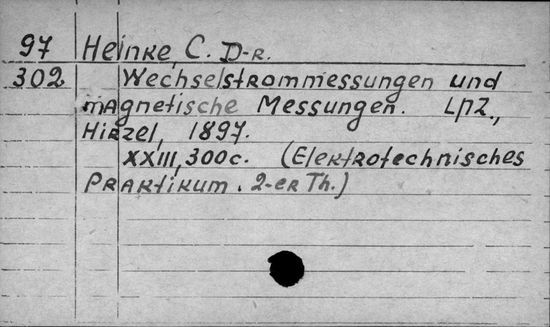 97 Heinke, C. D-r.
302 Wechselstrommessungen und
magnetische Messungen. Lpz.,
Hirzel, 1897.
XXIII, 300c. (Elektrotechnisches
Praktikum. 2-er Th.)